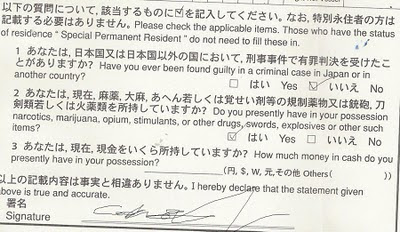 以下の質問について、該当するものに☑を記入してください。なお、特別永住者の方は
記載する必要はありません。Please check the applicable items. Those who have the status
of residence " Special Permanent Resident " do not need to fill these in.
1 あなたは、日本国又は日本国以外の国において、刑事事件で有罪判決を受けたこ
とがありますか? Have you ever been found guilty in a criminal case in Japan or in
another country?
□ はい Yes ☑ いいえ No
2 あなたは、現在、麻薬、大麻、あへん若しくは覚せい剤等の規制薬物又は銃砲、刀
剣類若しくは火薬類を所持していますか? Do you presently have in your possession
narcotics, marijuana, opium, stimulants, or other drugs, swords, explosives or other such
items?
☑ はい Yes □ いいえ No
3 あなたは、現在、現金をいくら所持していますか? How much money in cash do you
presently have in your possession?
(円, $, W, 元, その他 Others( ))
以上の記載内容は事実と相違ありません。I hereby declare that the statement given
above is true and accurate.
署名
Signature